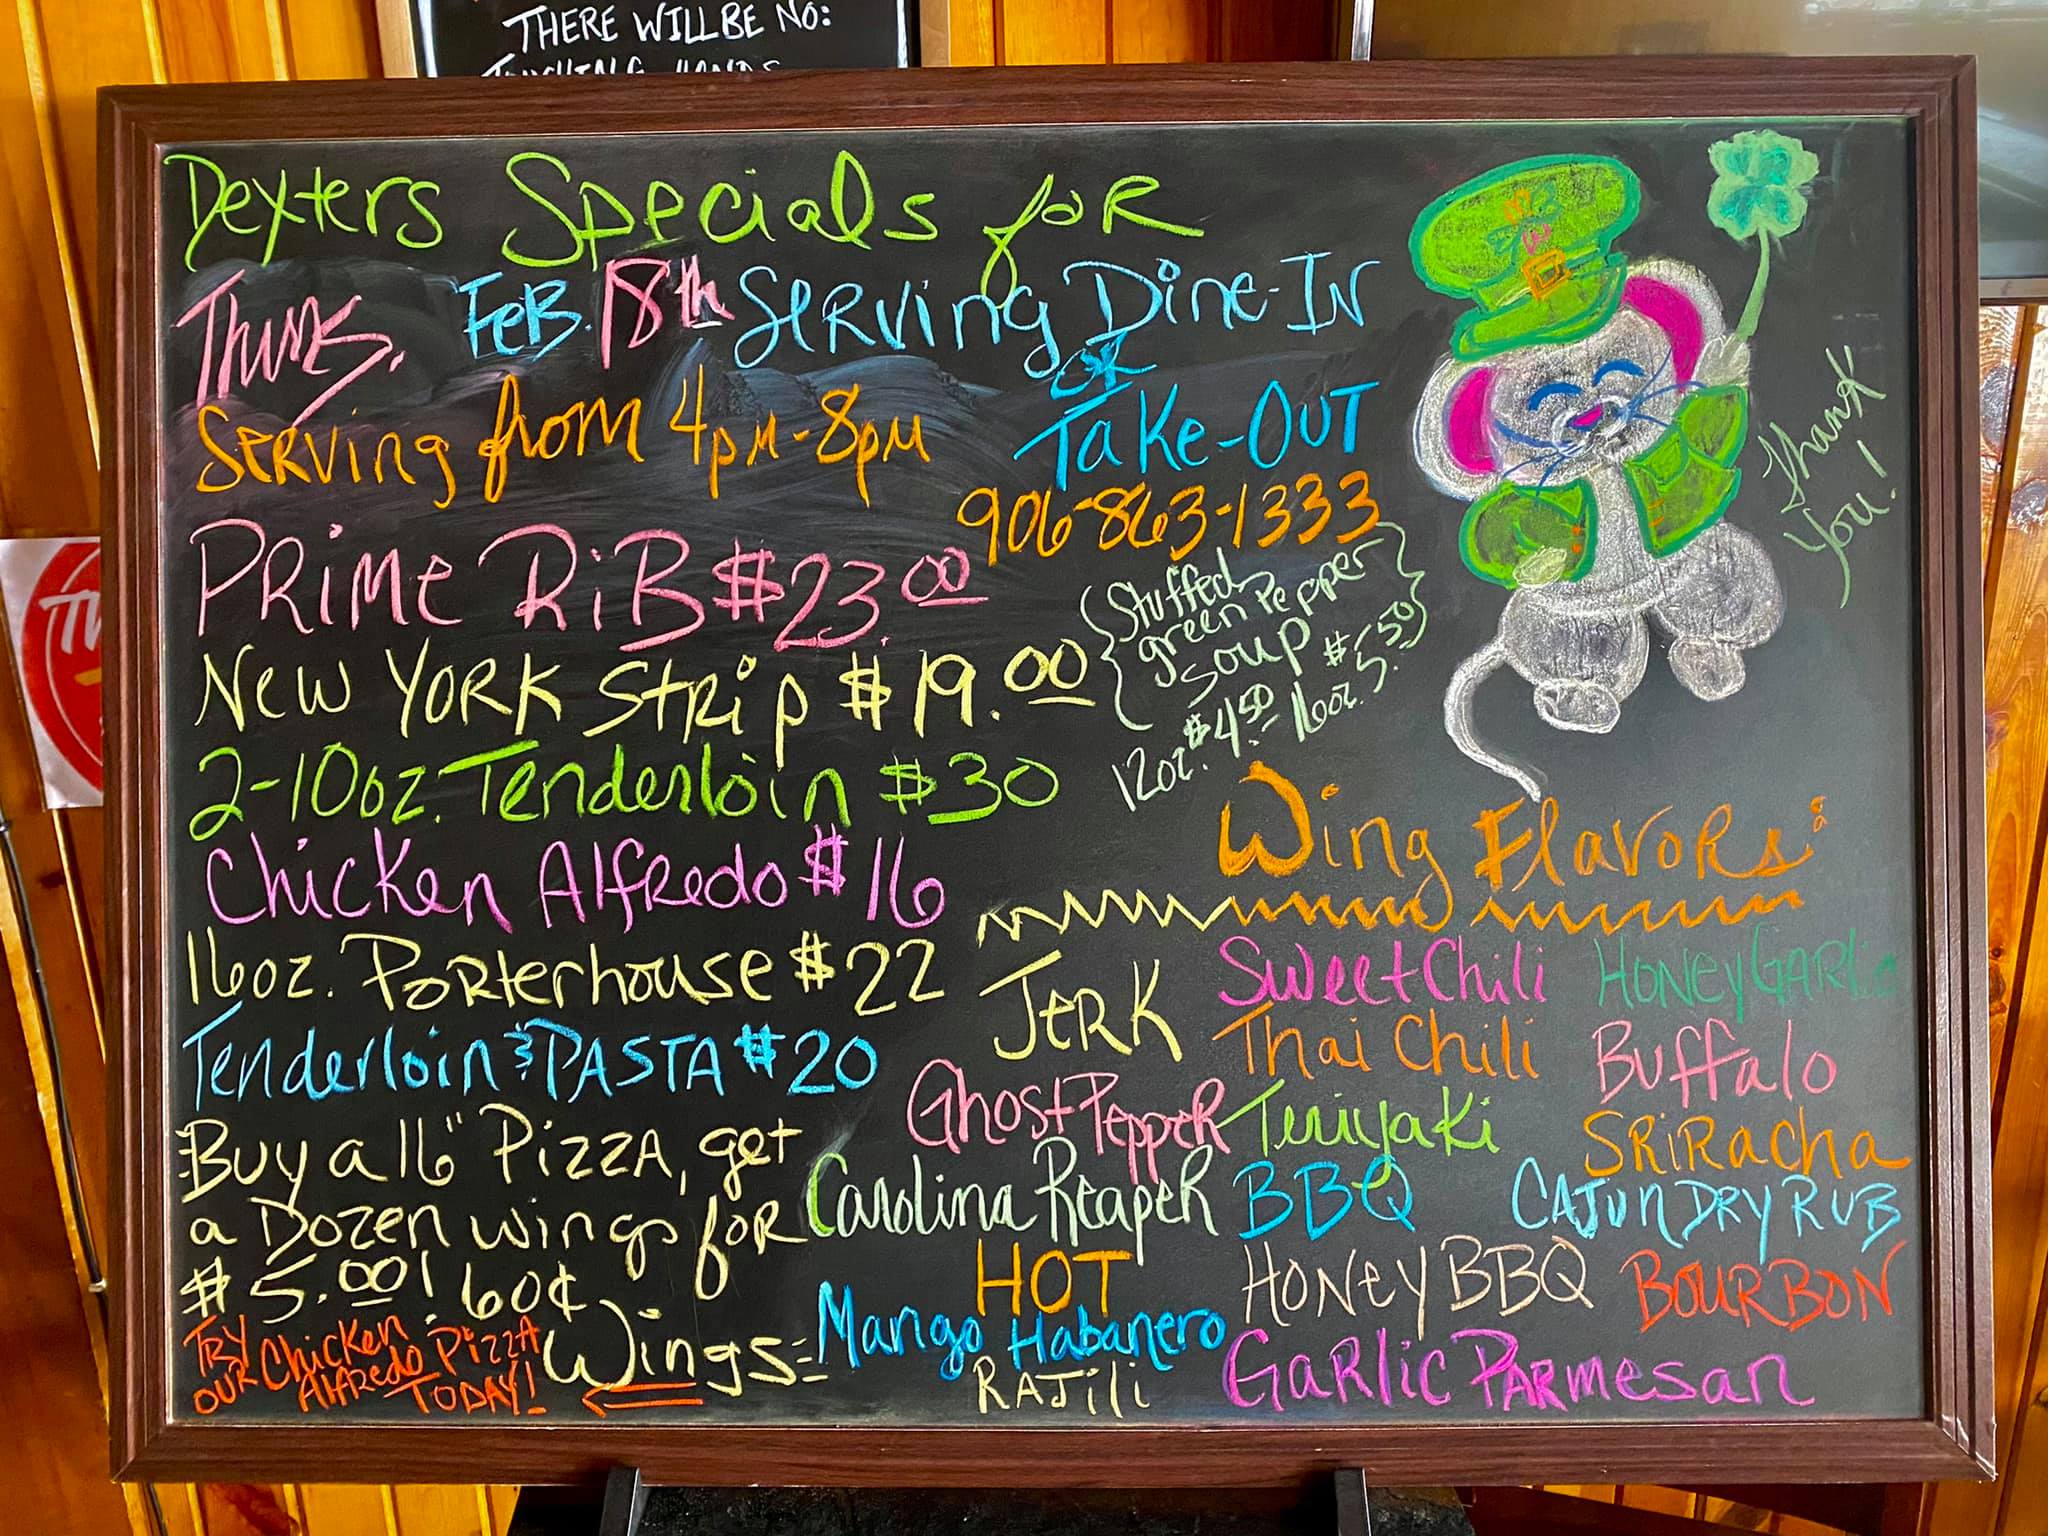 THERE WILL BE NO:
TOUCHING HANDS
Dexters Specials for
Thurs. Feb. 18th Serving Dine-In
or
Take-Out
Serving from 4pm-8pm
906-863-1333
Prime Rib $23.00
New York Strip $19.00
2-10oz. Tenderloin $30
Chicken Alfredo $16
16oz. Porterhouse $22
Tenderloin & Pasta $20
Buy a 16" Pizza, get
a Dozen wings for
$5.00! 60¢
Wings
Try our Chicken Alfredo Pizza Today!
{Stuffed
green Pepper
soup}
12oz. $4.50 - 16oz. $5.50
Thank
You!
Wing Flavors:
Jerk
Ghost Pepper
Carolina Reaper
HOT
Mango Habanero
Rajili
Sweet Chili
Thai Chili
Teriyaki
BBQ
Honey BBQ
Garlic Parmesan
Honey Garlic
Buffalo
Sriracha
Cajun Dry Rub
Bourbon